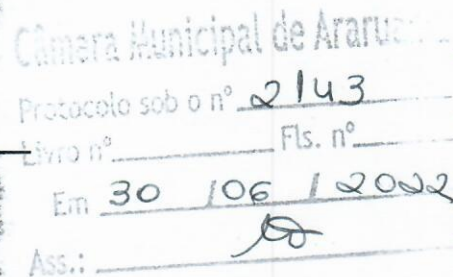 Câmara Municipal de Araru
Protocolo sob o nº 2143
Livro nº Fls. nº
Em 30 / 06 / 2022
Ass.: